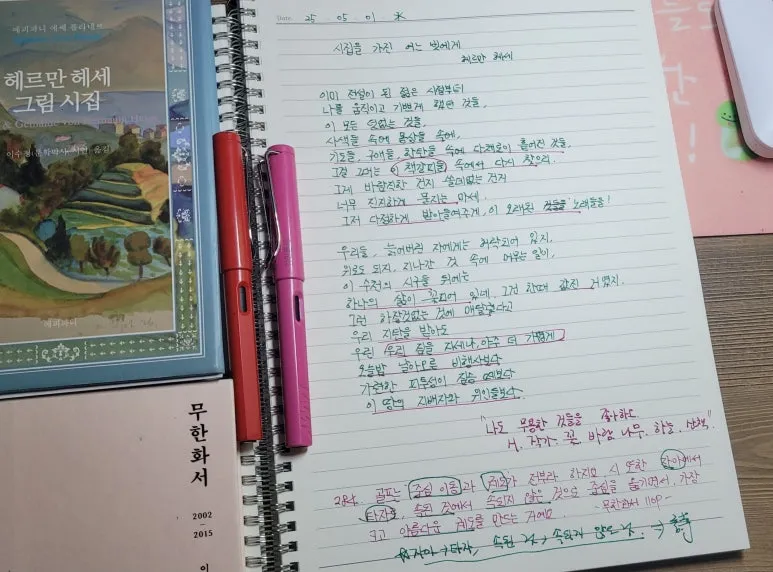 에피파니 에쎄 플라네르
헤르만 헤세
그림 시집
이수정(문학박사·시인) 옮김
에피파니
무한화서
2002
2015
이
Date. 25. 05. 01. 木
시집을 가진 어느 벗에게
헤르만 헤세
이미 전설이 된 젊은 시절부터
나를 움직이고 기쁘게 했던 것들,
이 모든 덧없는 것들,
사색들 속에 몽상들 속에,
기도들, 구애들, 한탄들 속에 다채로이 흩어진 것들,
그걸 그대는 이 책갈피들 속에서 다시 찾으리.
그게 바람직한 건지 쓸데없는 건지
너무 진지하게 묻지는 마세.
그저 다정하게 받아들여주게, 이 오래된 노래들을!
우리들, 늙어버린 자에게는 허락되어 있지,
위로도 되지, 지나간 것 속에 머무는 일이,
이 수천의 시구들 뒤에는
하나의 삶이 꽃피어 있네, 그건 한때 값진 거였지.
그런 하잘것없는 것에 매달렸다고
우리 지탄을 받아도
우린 우리 짐을 지세나, 아주 더 가볍게
오늘밤 날아오른 비행사보다
가련한 피투성이 짐승 떼보다
이 땅의 지배자와 위인들보다.
"나도 무용한 것들을 좋아하오
시, 작가, 꽃, 바람, 나무, 하늘, 산책".
284 골프는 중심 이동과 궤도가 전부라 하지요 시 또한 자아에서
타자로, 속된 것에서 속되지 않은 것으로 중심을 옮기면서, 가장
크고 아름다운 궤도를 만드는 거예요. -무한화서 110p-
자아→타자, 속된 것→속되지 않은 것. →